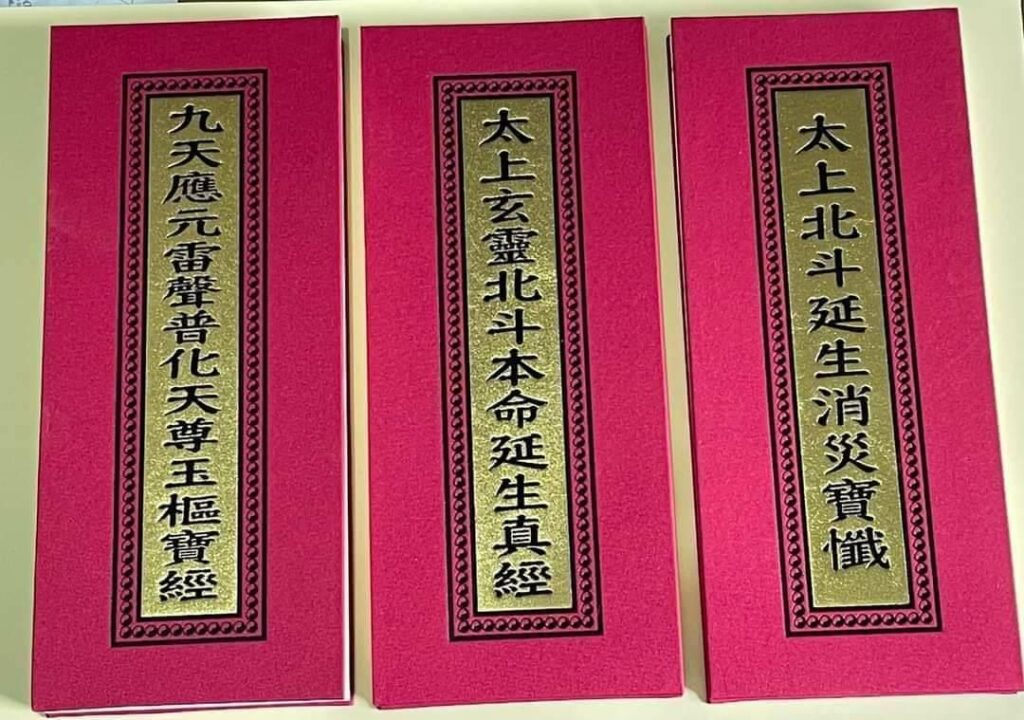 九天應元雷聲普化天尊玉樞寶經
太上玄靈北斗本命延生真經
太上北斗延生消災寶懺